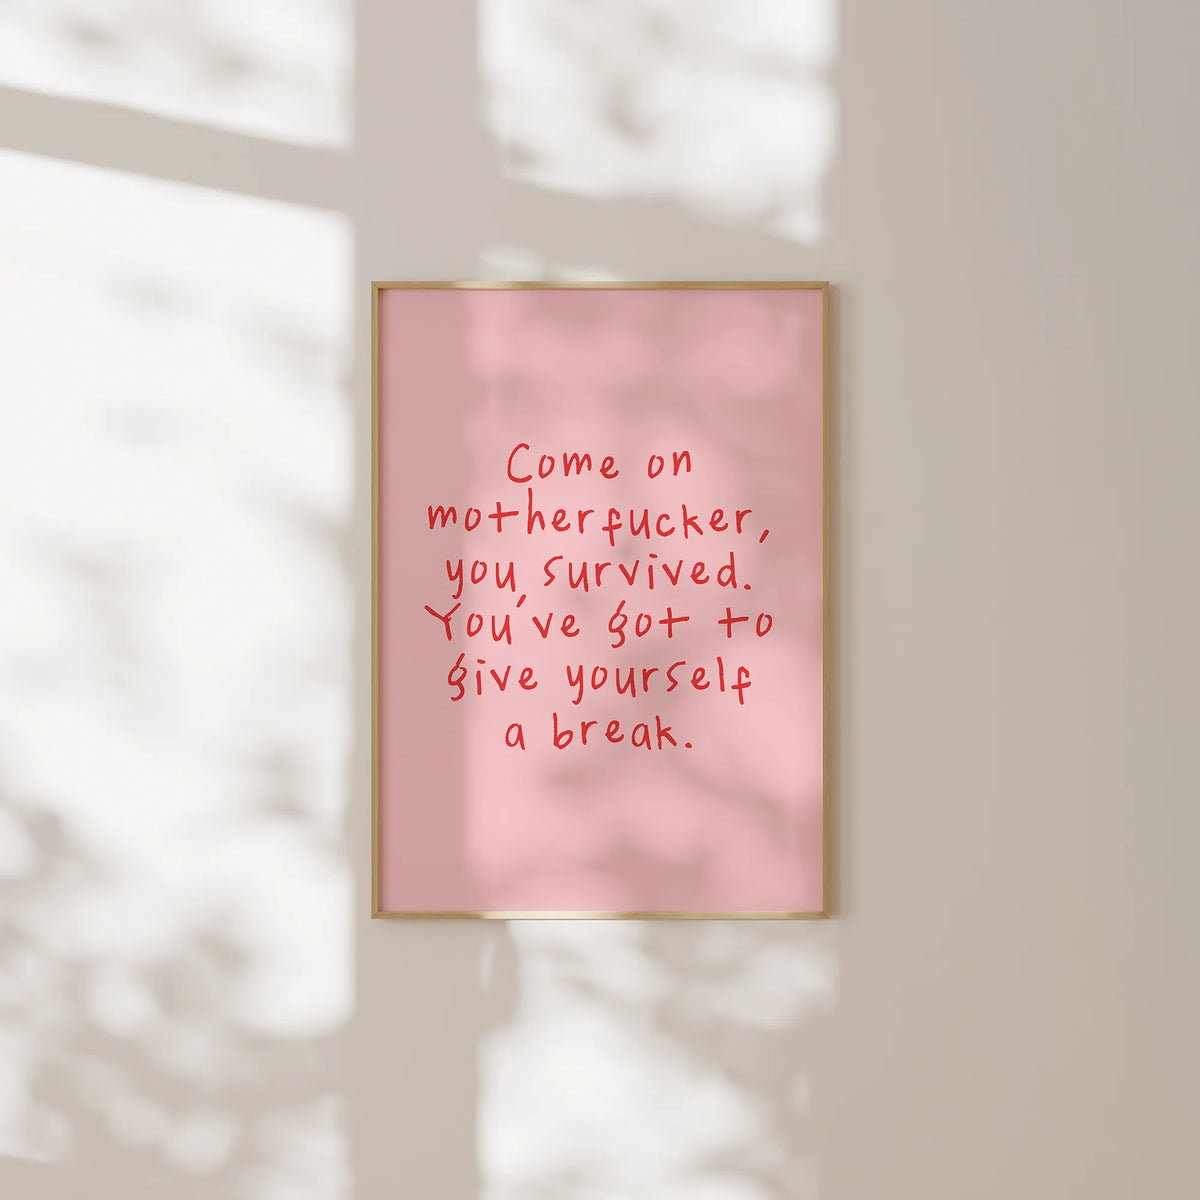 Come on
motherfucker,
you survived.
You've got to
give yourself
a break.